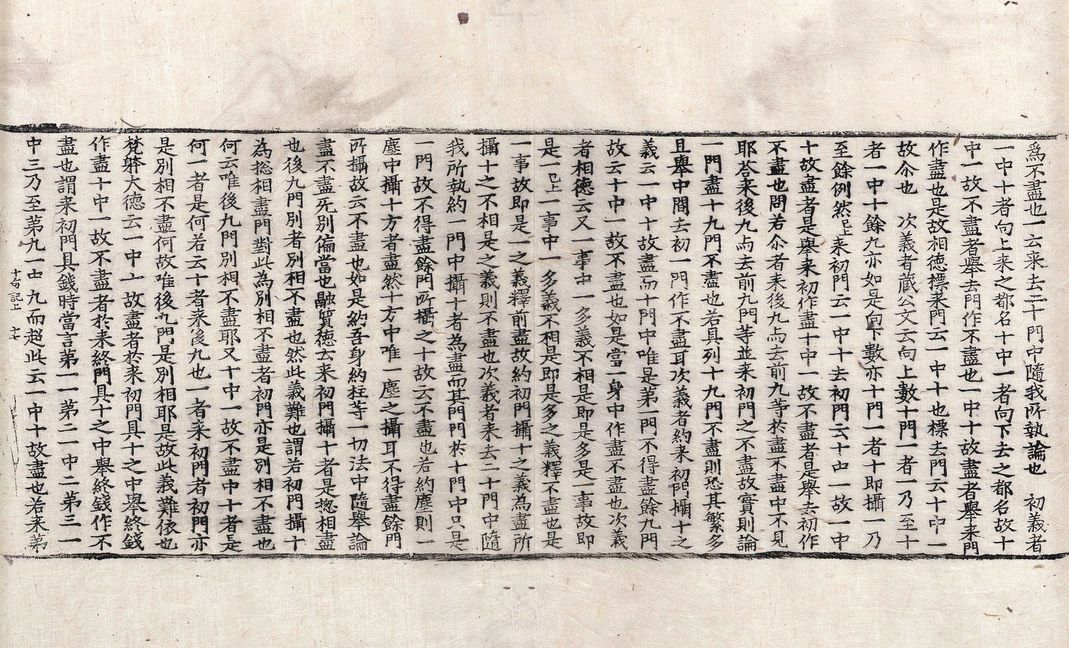 爲不盡也一云来去二十門中隨我所執論也　初義者
一中十者向上来之都名十中一者向下去之都名故十
中一故不盡者舉去門作不盡也一中十故盡者舉来門
作盡也是故相德標来門云一中十也標去門云十中一
故尒也　次義者藏公文云向上數十門一者一乃至十
者一中十餘九亦如是向下數亦十門一者十即攝一乃
至餘例然已上来初門云一中十去初門云十中一故一中
十故盡者是舉来初作盡十中一故不盡者是舉去初作
不盡也問若尒者来後九与去前九等於盡不盡中不見
耶荅来後九与去前九門等並来初門之不盡故實則論
一門盡十九門不盡也若具列十九門不盡則恐其繁多
且舉中間去初一門作不盡耳次義者約来初門攝十之
義云一中十故盡而十門中唯是第一門不得盡餘九門
故云十中一故不盡也如是當一身中作盡不盡也次義
者相德云又一事中一多義不相是即是多是一事故即
是一已上一事中一多義不相是即是多之義釋不盡也是
一事故即是一之義釋前盡故約初門攝十之義爲盡所
攝十之不相是之義則不盡也次義者来去二十門中隨
我所執約一門中攝十者爲盡而其門於十門中只是
一門故不得盡餘門所攝之十故云不盡也若約塵則一
塵中攝十方者盡然十方中唯一塵之攝耳不得盡餘門
所攝故云不盡也如是約吾身約柱等一切法中隨舉論
盡不盡无別偏當也融質德云来初門攝十者是捴相盡
也後九門別者別相不盡也然此義難也謂若初門攝十
為捴相盡門對此為別相不盡者初門亦是別相不盡也
何云唯後九門別相不盡耶又十中一故不盡中十者是
何一者是何若云十者来後九也一者来初門者初門亦
是別相不盡何故唯後九門是別相耶是故此義難依也
梵㛹大德云一中十故盡者於来初門具十之中舉終錢
作盡十中一故不盡者於来終門具十之中舉終錢作不
盡也謂来初門具錢時當言第一一第二一中二第三一
中三乃至第九一中九而超此云一中十故盡也若来第
十句記上　十七